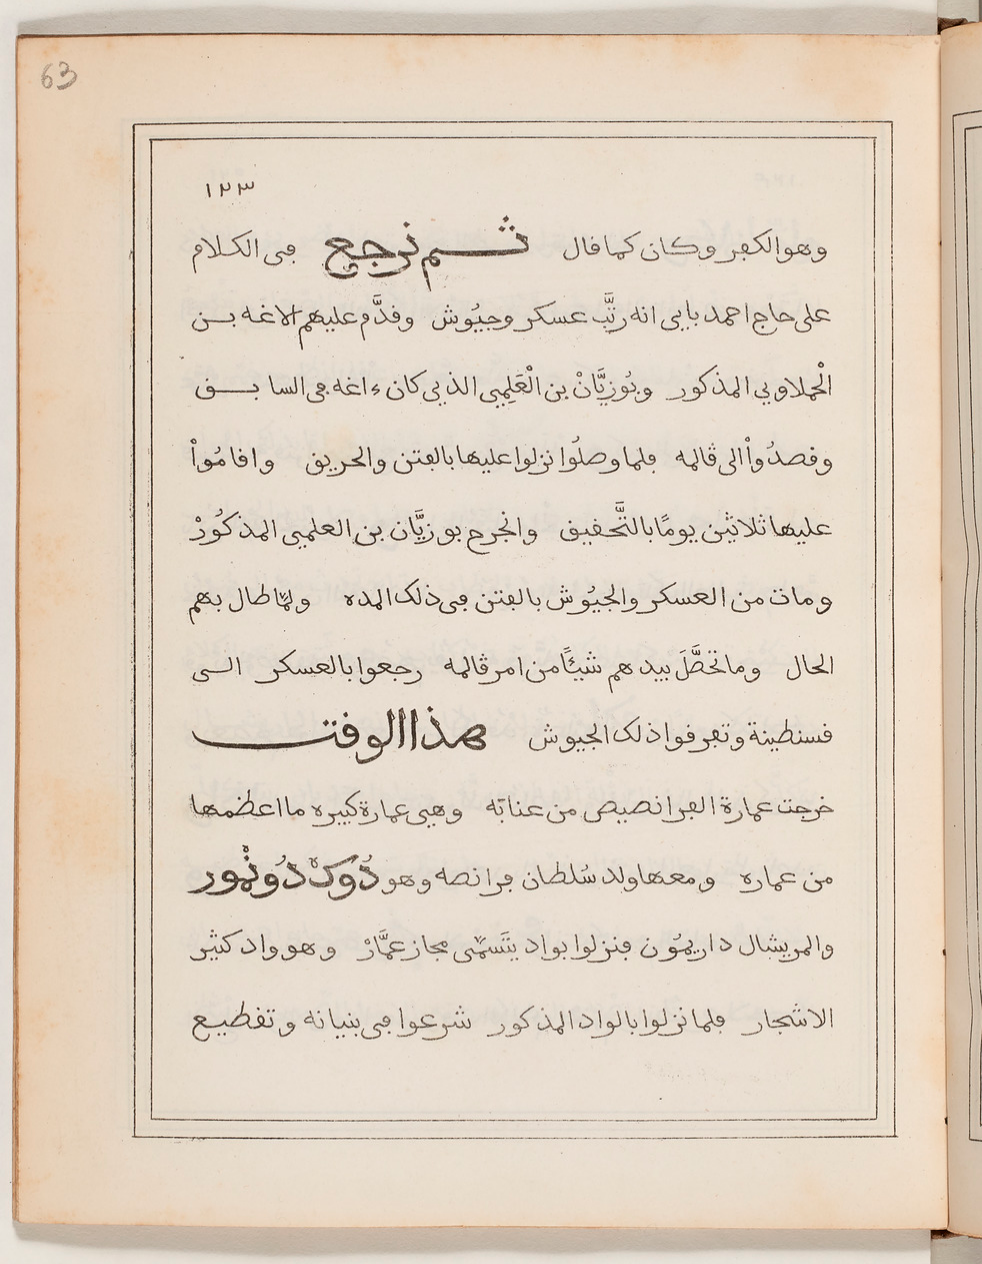 63
١٢٣
وهو الكفر وكان كما قال ثم نرجع في الكلام
على حاج احمد بايي انه رتَّب عسكر وجيُوش وقدَّم عليهم الاغه بن
الْحملاويي المذكور وبُوزيَّانْ بن الْعَلِميي الذيي كان ءاغه في السابق
وقصدُواْ الى ڤالمه فلما وصلُوا نزلوا عليها بالفتن والحريق واقامُواْ
عليها ثلاثين يومًا بالتَّحقيق وانجرح بوزيَّان بن العلميي المذكُورْ
ومات من العسكر والجيُوش بالفتن في ذلك المده ولمّا طال بهم
الحال وما تحصَّلَ بيدهم شيئًا من امر ڤالمه رجعوا بالعسكر الى
قسنطينة وتفرقوا ذلك الجيوش هذا الوقت
خرجت عمارة الفرانصيص من عنابّه وهيي عمارة كبيره ما اعظمها
من عماره ومعها ولد سُلطان فرانصه وهو دُوكْ دُونْمور
والمريشال داريمُون فنزلوا بواد يتَسمّى مجاز عمَّارْ وهو واد كثير
الاشجار فلما نزلوا بالواد المذكور شرعوا في بنيانه وتقطيع